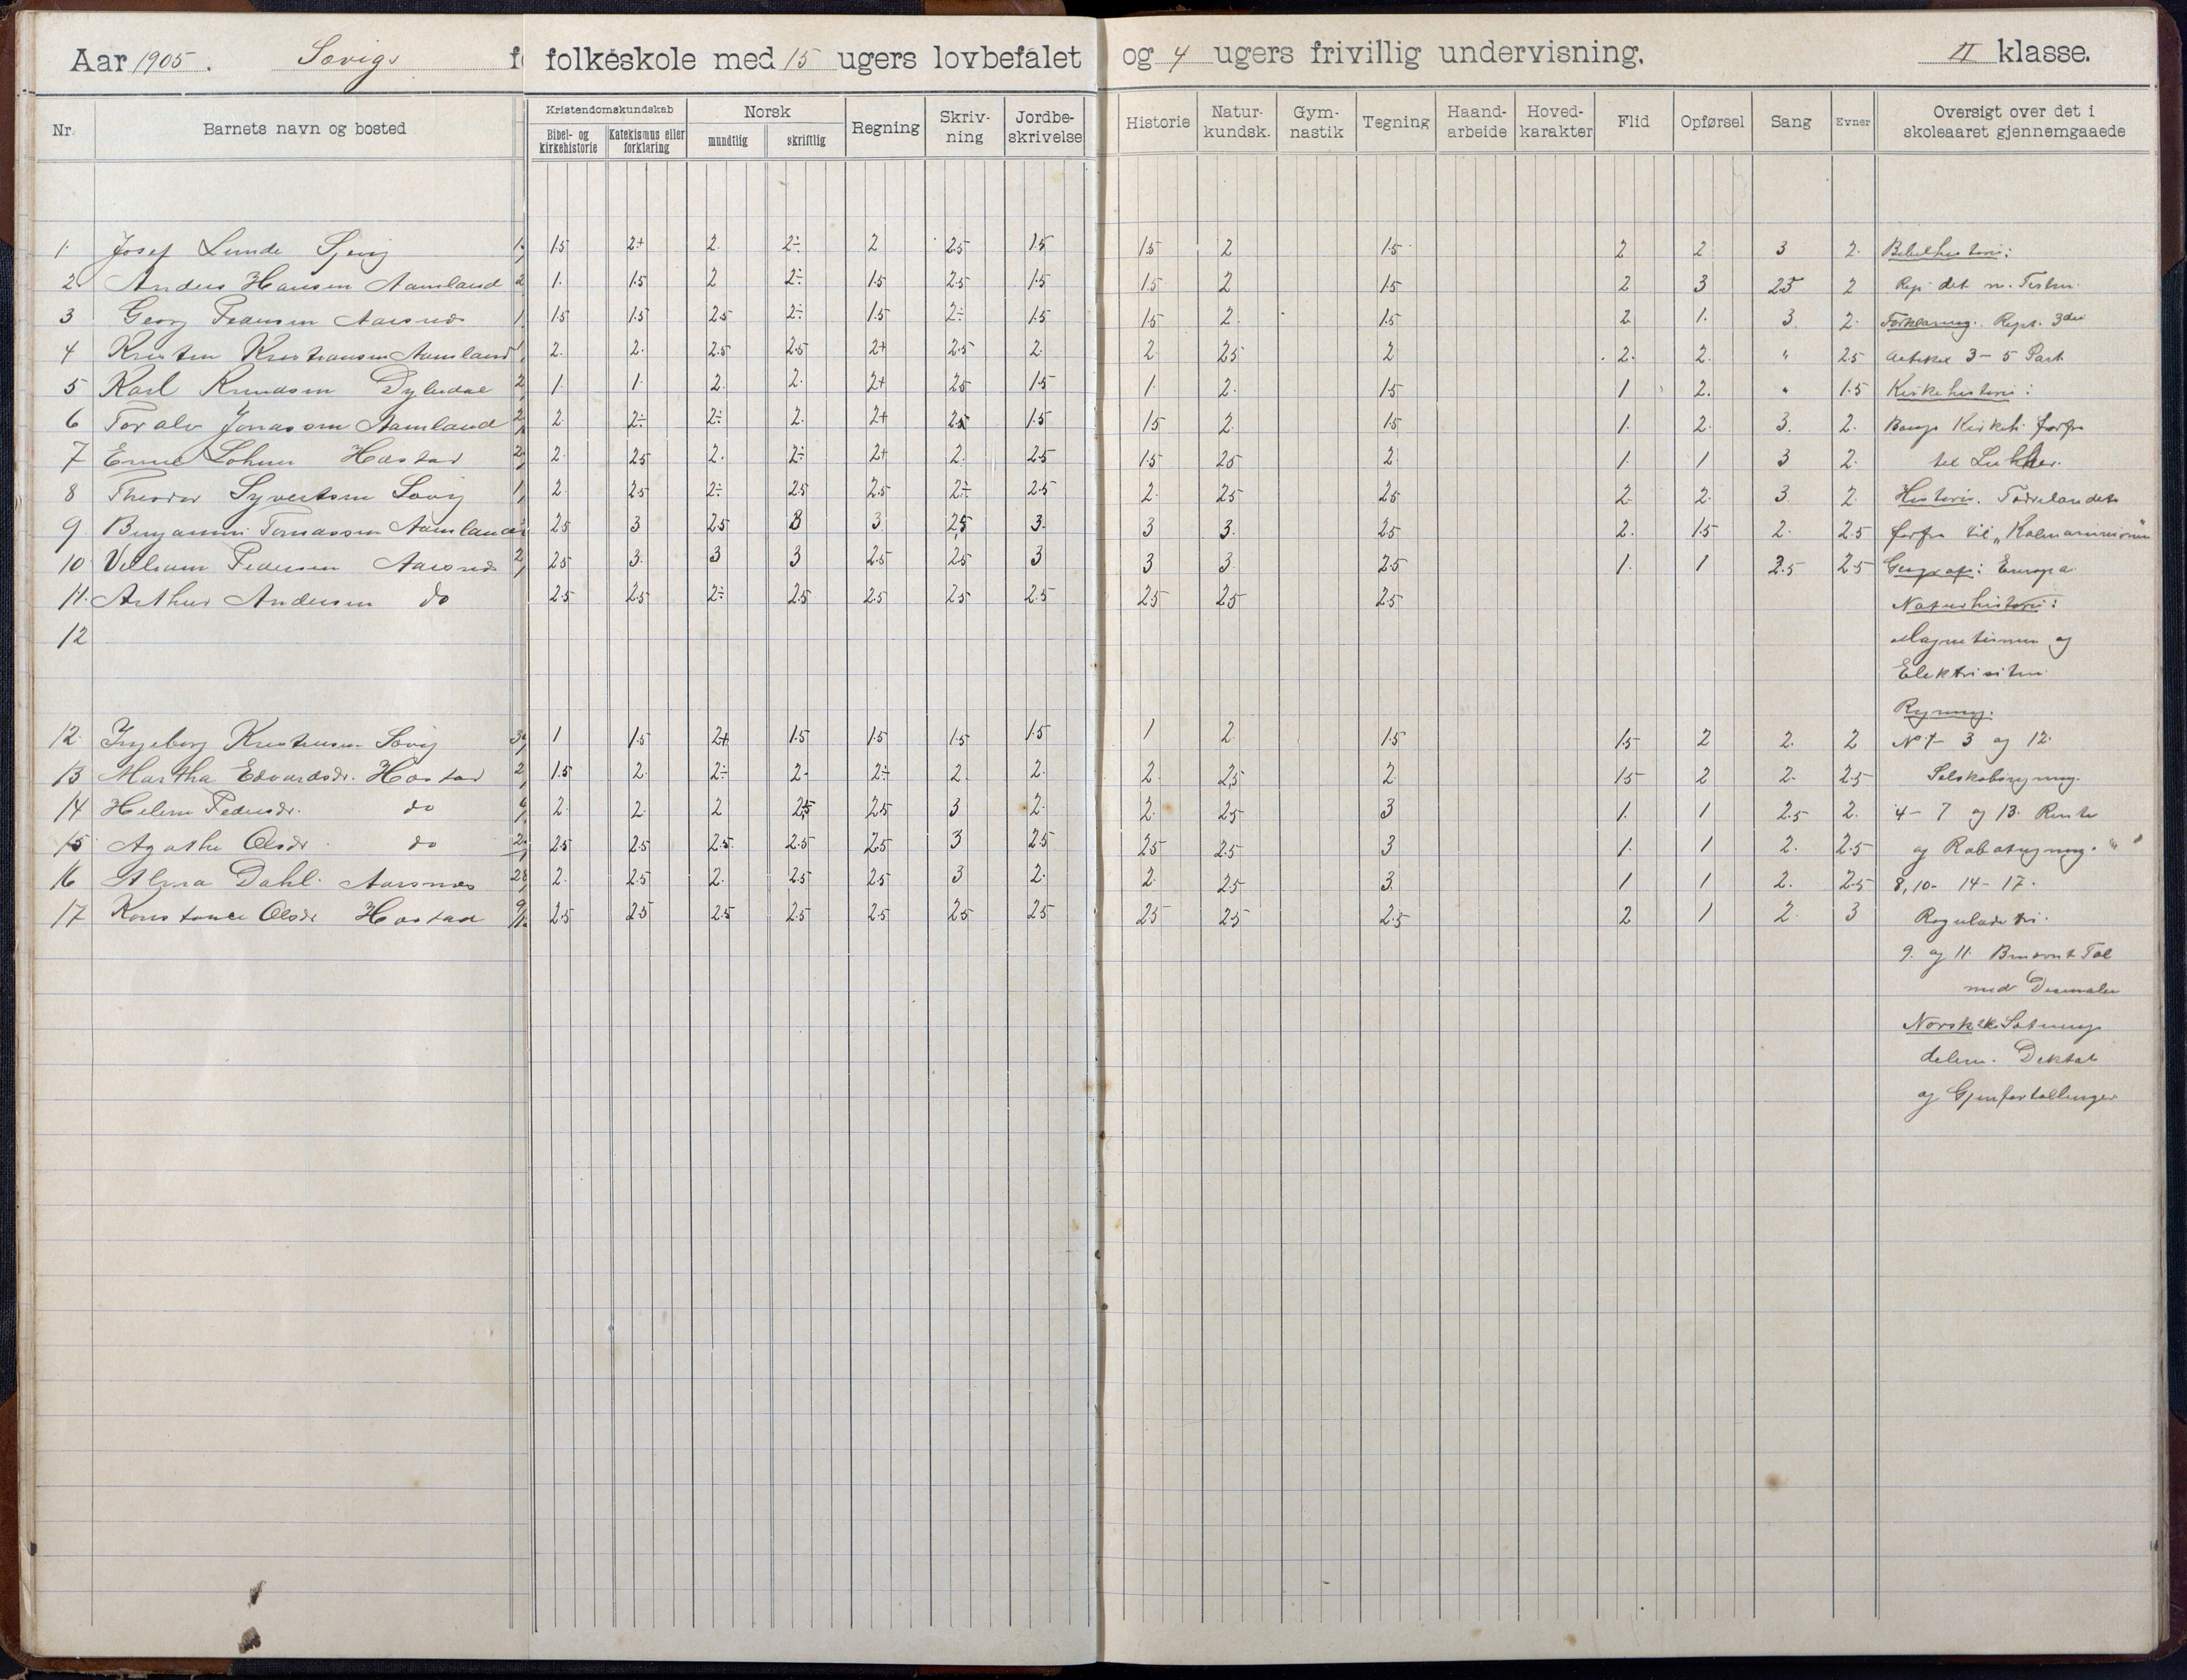 Aar 1905. Søvigs folkeskole med 15 ugers lovbefalet og 4 ugers frivillig undervisning. II klasse.
Nr. Barnets navn og bosted Kristendomskundskab Norsk Regning Skriv-ning Jordbe-skrivelse Historie Natur-kundsk. Gym-nastik Tegning Haand-arbeide Hoved-karakter Flid Opførsel Sang Evner Oversigt over det i skoleaaret gjennemgaaede
Bibel- og kirkehistorie Katekismus eller forklaring mundtlig skriftlig
1. Josef Lunde Sjevig 1.5 2+ 2. 2÷ 2 2.5 1.5 1.5 2 1.5 2 2 3 2. Bibelhistorie:
2 Anders Hansen Aamland 1. 1.5 2 2÷ 1.5 2.5 1.5 1.5 2 1.5 2 3 2.5 2 Rep. det n. Testm.
3 Georg Pedersen Aarsnes 1.5 1.5 2.5 2÷ 1.5 2÷ 1.5 1.5 2. 1.5 2. 1. 3. 2. Forklaring. Rept. 3die
4 Kristen Kristiansen Aamland 2. 2. 2.5 2.5 2+ 2.5 2. 2. 2.5 2 2. 2. " 2.5 Artikel 3-5 Part
5 Karl Knudsen Dyledal 1. 1. 2. 2. 2+ 2.5 1.5 1. 2. 1.5 1 2. " 1.5 Kirkehistorie:
6 Toralv Jonassen Aamland 2. 2÷ 2÷ 2. 2+ 2.5 1.5 1.5 2. 1.5 1. 2. 3. 2. Bangs Kirkeh. forfra
7 Emil Lohne Hæstad 2. 2.5 2. 2÷ 2+ 2. 2.5 1.5 2.5 2 1. 1 3 2. til Luther.
8 Theodor Syvertsen Søvig 2. 2.5 2÷ 2.5 2.5 2÷ 2.5 2. 2.5 2.5 2 2. 3. 2. Historie. Fædrelandets
9. Benjamin Tomassen Aamland 2.5 3 2.5 3 3. 2.5 3. 3 3. 2.5 2. 1.5 2. 2.5 forfra til „Kalmarunionen"
10 Vilham Pedersen Aarsnes 2.5 3. 3 3 2.5 2.5 3 3 3. 2.5 1. 1 2.5 2.5 Geografi: Europa
11. Arthur Andersen do 2.5 2.5 2÷ 2.5 2.5 2.5 2.5 2.5 2.5 2.5 Naturhistorie:
12 Magnetismen og
Elektrisiten
Regning.
12. Ingeborg Kristensen Søvig 1 1.5 2+ 1.5 1.5 1.5 1.5 1 2. 1.5 1.5 2 2. 2 No 1-3 og 12.
13 Martha Edvardsdr. Hæstad 1.5 2. 2÷ 2. 2÷ 2. 2. 2. 2.5 2. 1.5 2 2. 2.5 Selskabsregning.
14 Helene Pedersdr. do 2. 2. 2 2.5 2.5 3 2. 2. 2.5 3 1. 1 2.5 2. 4-7 og 13. Rente
15 Agathe Olsdr. do 2.5 2.5 2.5. 2.5 2.5 3 2.5 2.5 2.5 3 1. 1 2. 2.5 og Rabatregning.
16 Alma Dahl. Aarsnes 2. 2.5 2. 2.5 2.5 3 2. 2. 2.5 3. 1 1 2. 2.5 8, 10- 14-17.
17 Konstance Olsdr Hæstad 2.5 2.5 2.5 2.5 2.5 2.5 2.5 2.5 2.5 2.5 2 1 2. 3 Reguladetri.
9. og 11. Benævnt Tal
med Desimaler
Norsk: Sætnings
delene. Diktat
og Gjenfortællinger